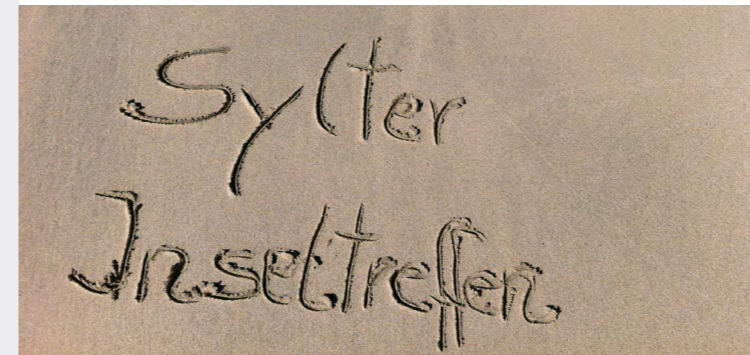 Sylter
Inseltreffen